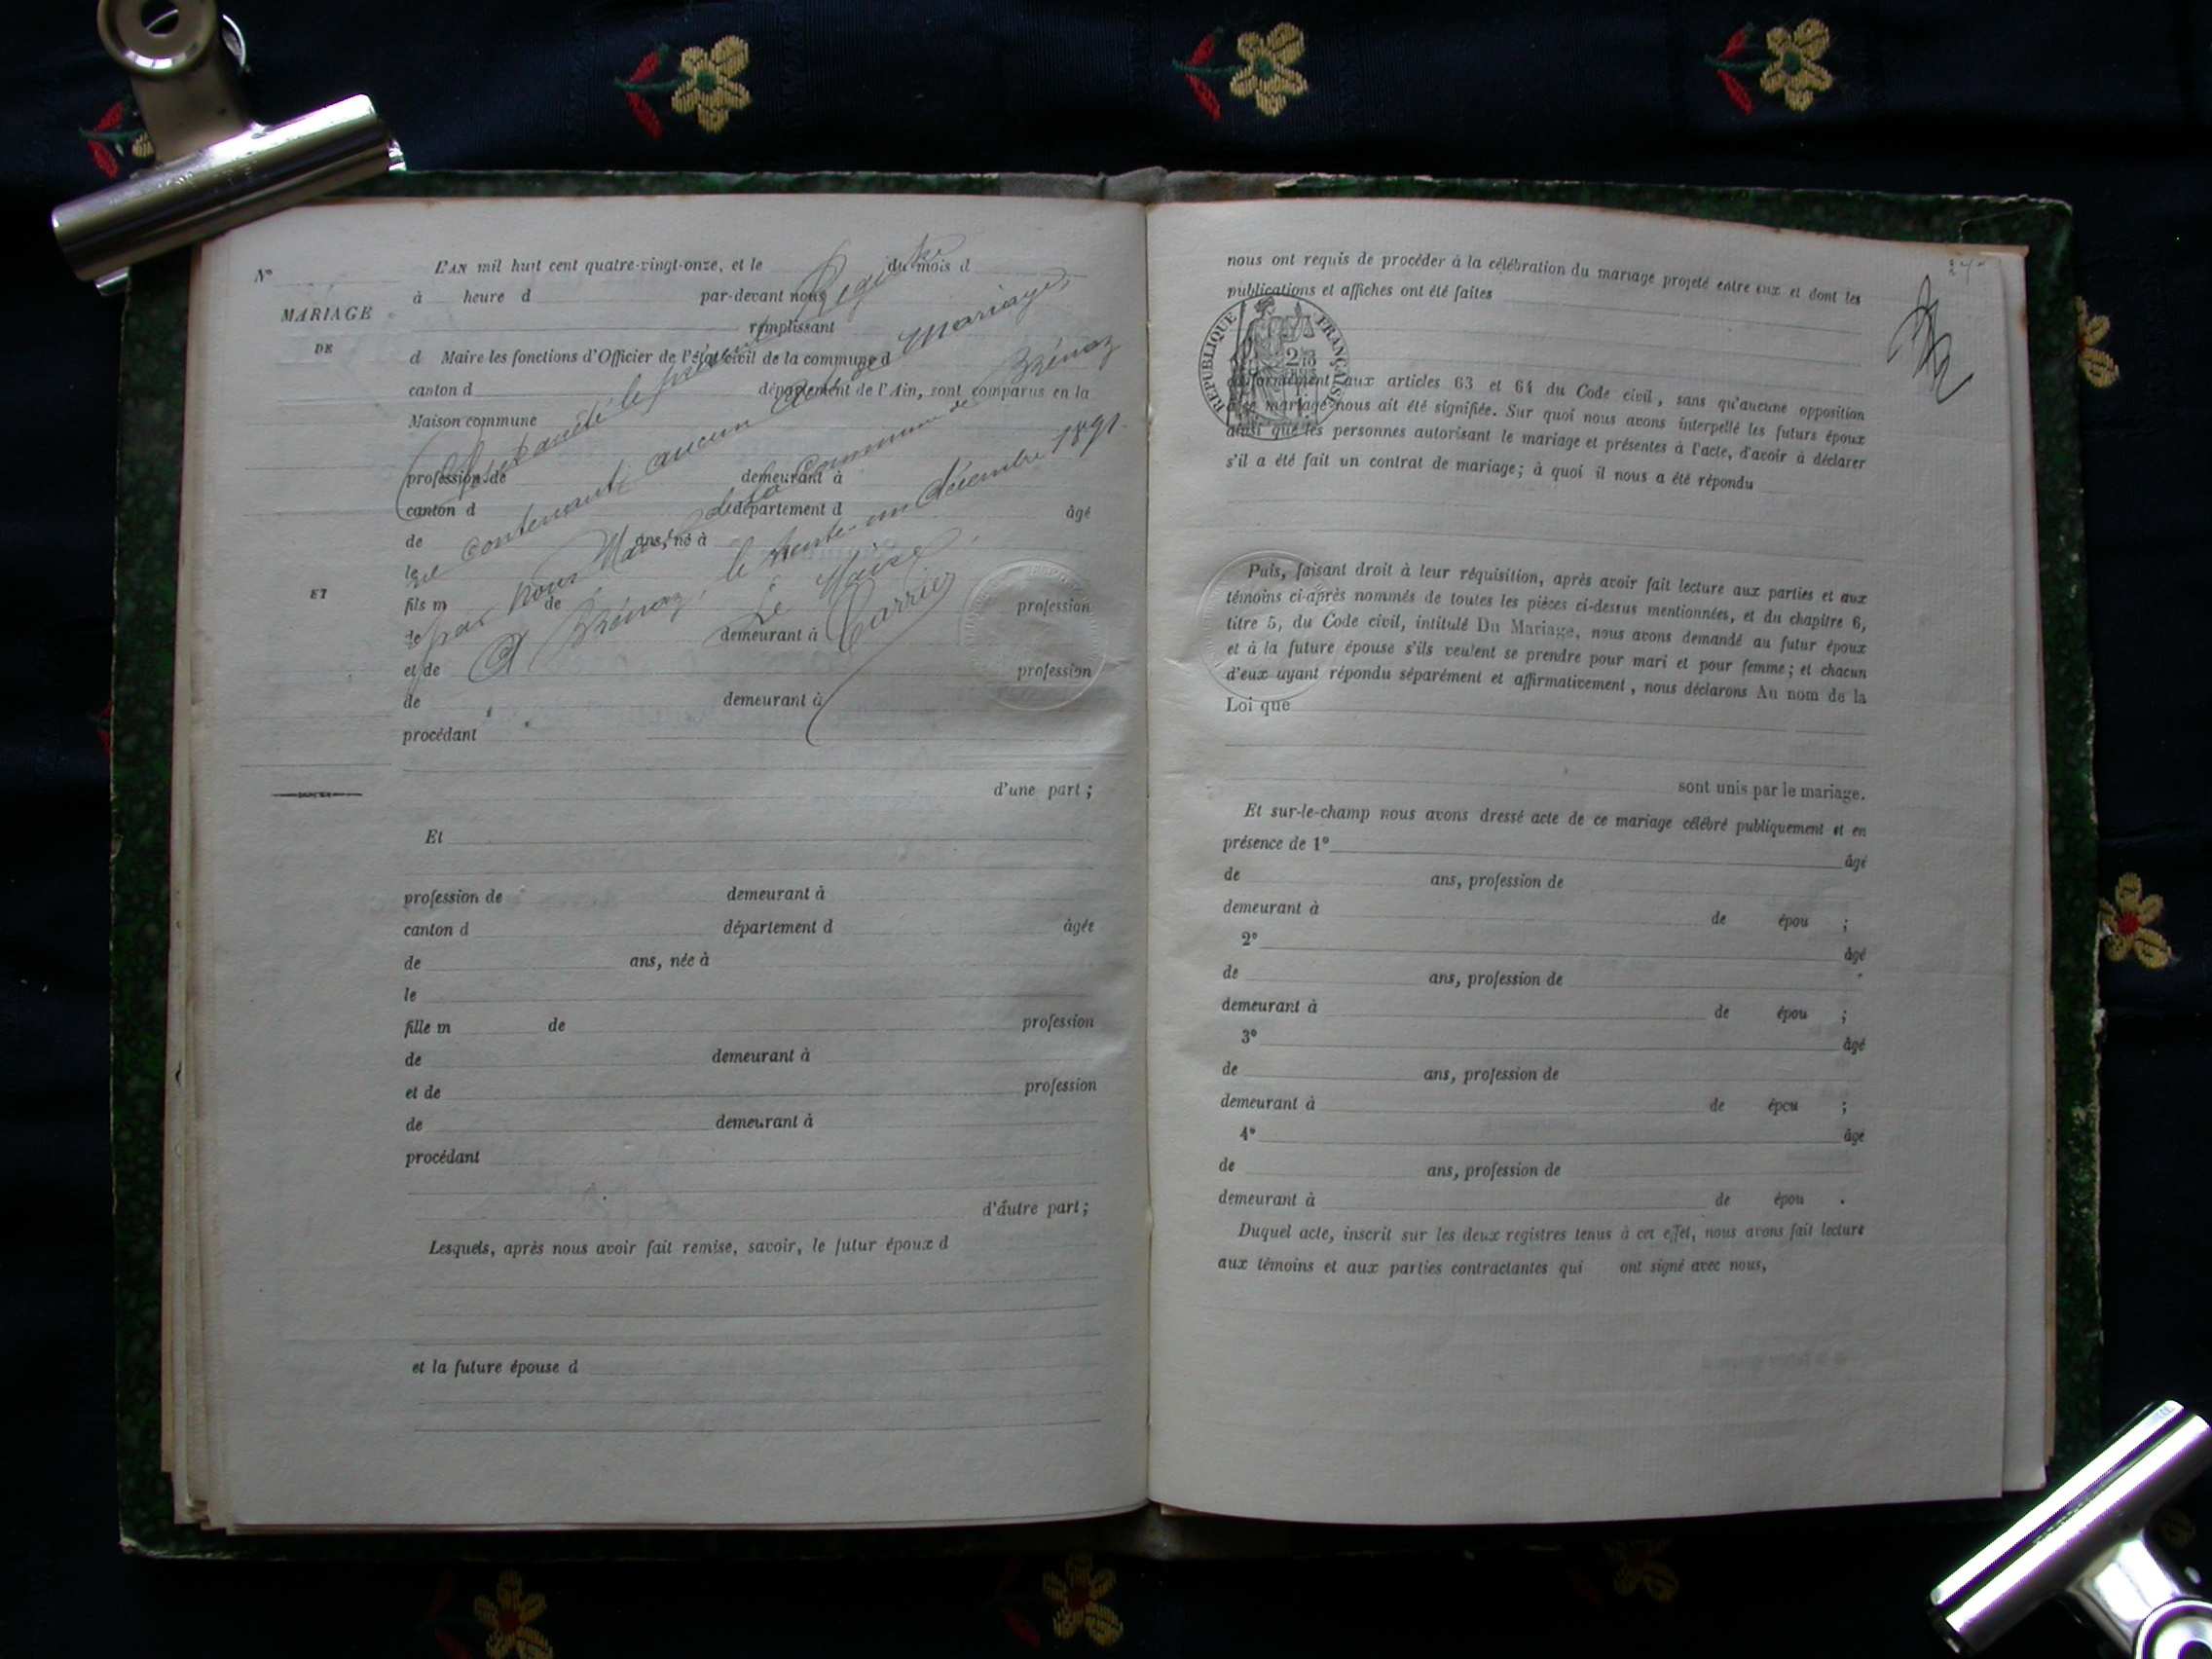 N°
MARIAGE
DE
ET
L'AN mil huit cent quatre-vingt-onze, et le du mois d
à heure d par-devant nous
remplissant
d Maire les fonctions d'Officier de l'état civil de la commune d
canton d département de l'Ain, sont comparus en la
Maison commune
profession de demeurant à
canton d département d âgé
de ans, né à
le
fils m de profession
de demeurant à
et de profession
de demeurant à
procédant
d'une part ;
Et
profession de demeurant à
canton d département d âgée
de ans, née à
le
fille m de profession
de demeurant à
et de profession
de demeurant à
procédant
d'autre part ;
Lesquels, après nous avoir fait remise, savoir, le futur époux d
et la future épouse d
arrêté le présent Registre
ne contenant aucun acte de Mariage,
par nous Maire de la commune de Brénaz
A Brénaz, le trente-un décembre 1891.
Le Maire,
Carrier
nous ont requis de procéder à la célébration du mariage projeté entre eux et dont les
publications et affiches ont été faites
RÉPUBLIQUE FRANÇAISE
conformément aux articles 63 et 64 du Code civil, sans qu'aucune opposition
à ce mariage nous ait été signifiée. Sur quoi nous avons interpellé les futurs époux
ainsi que les personnes autorisant le mariage et présentes à l'acte, d'avoir à déclarer
s'il a été fait un contrat de mariage ; à quoi il nous a été répondu
Puis, faisant droit à leur réquisition, après avoir fait lecture aux parties et aux
témoins ci-après nommés de toutes les pièces ci-dessus mentionnées, et du chapitre 6,
titre 5, du Code civil, intitulé Du Mariage, nous avons demandé au futur époux
et à la future épouse s'ils veulent se prendre pour mari et pour femme ; et chacun
d'eux ayant répondu séparément et affirmativement, nous déclarons Au nom de la
Loi que
sont unis par le mariage.
Et sur-le-champ nous avons dressé acte de ce mariage célébré publiquement et en
présence de 1° âgé
de ans, profession de
demeurant à de épou ;
2° âgé
de ans, profession de
demeurant à de épou ;
3° âgé
de ans, profession de
demeurant à de épou ;
4° âgé
de ans, profession de
demeurant à de épou .
Duquel acte, inscrit sur les deux registres tenus à cet effet, nous avons fait lecture
aux témoins et aux parties contractantes qui ont signé avec nous,